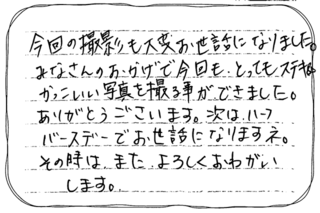 今回の撮影も大変お世話になりました。
みなさんのおかげで今回も、とってもステキ&
かっこいい写真を撮る事ができました。
ありがとうございます。次は、ハーフ
バースデーでお世話になりますネ。
その時は、また、よろしくおねがい
します。